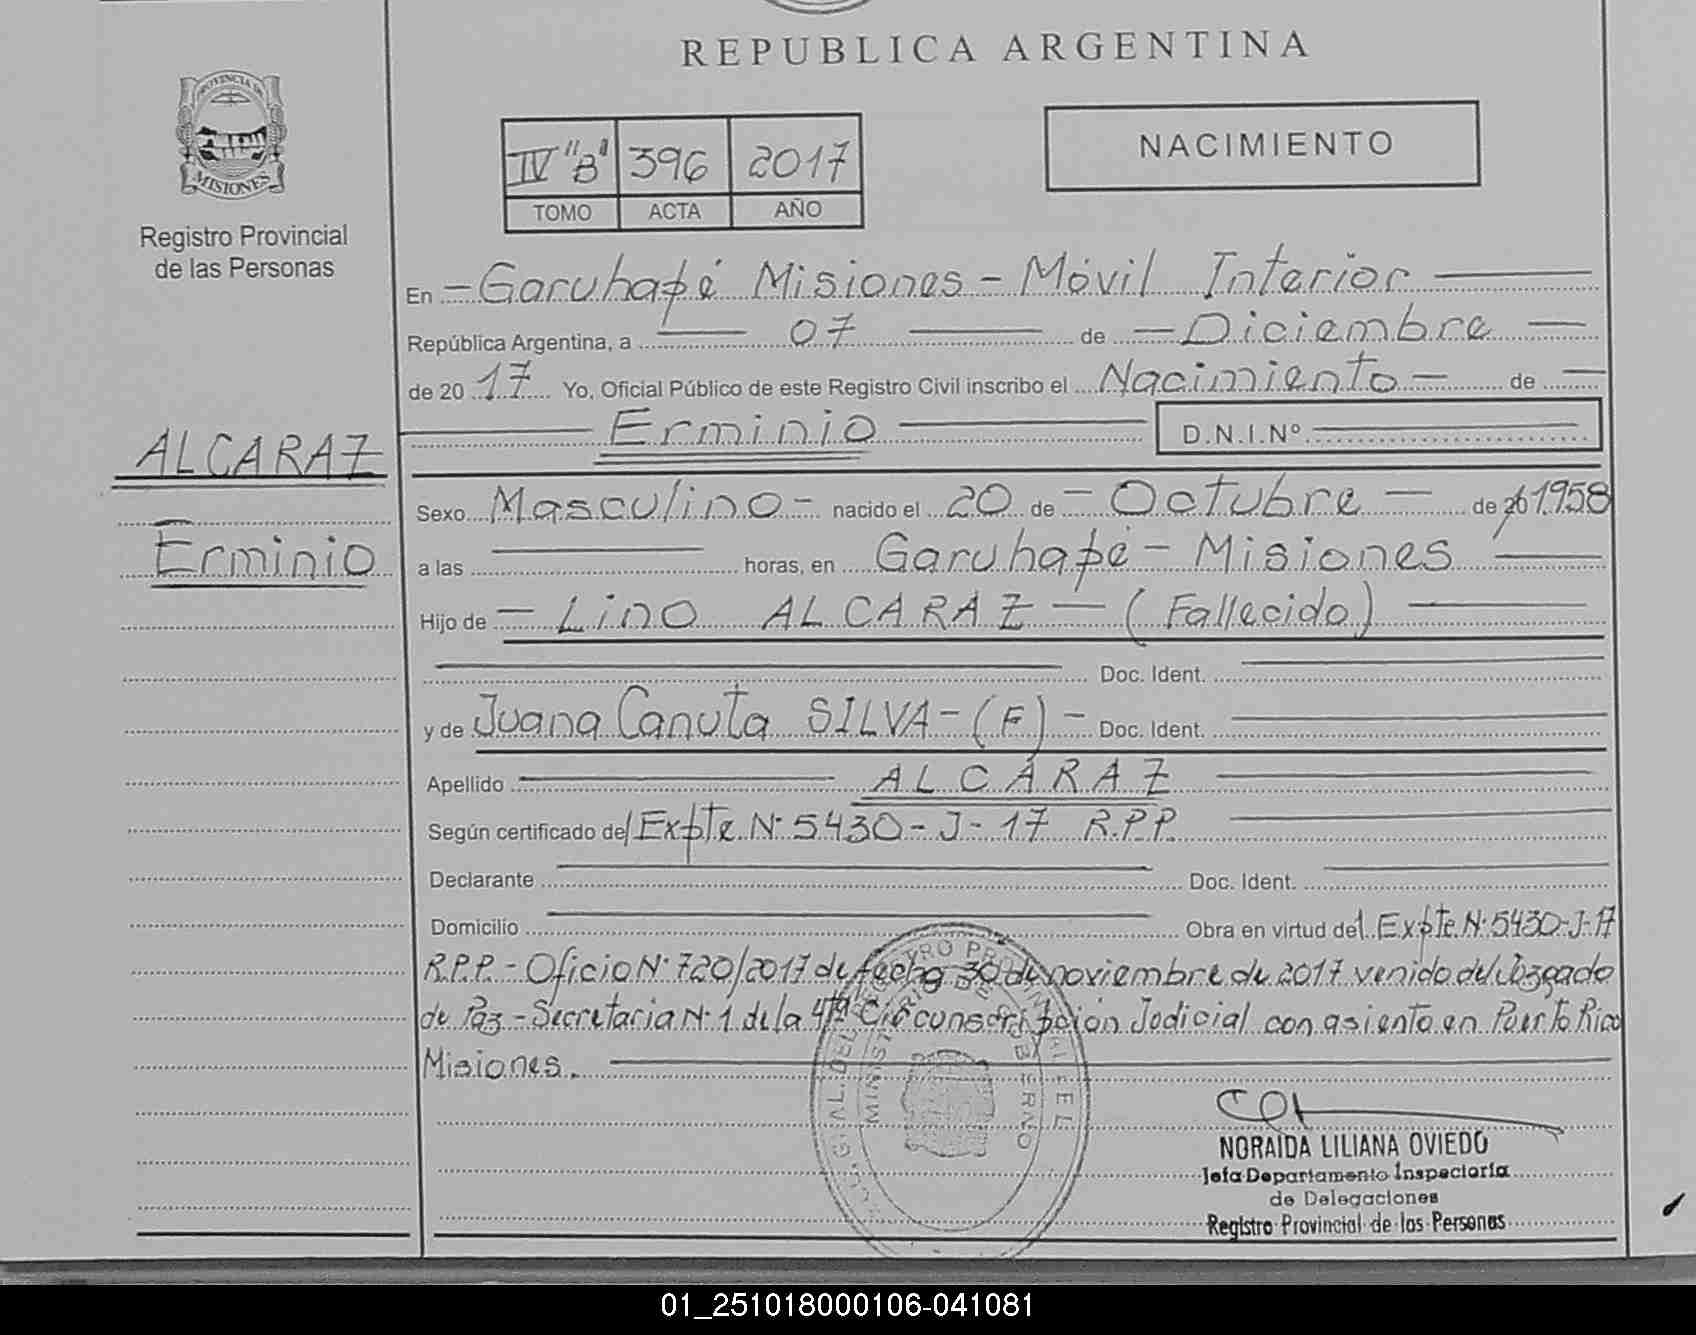 REPUBLICA ARGENTINA
PROVINCIA DE
MISIONES
Registro Provincial
de las Personas
IV "B" 396 2017
TOMO ACTA AÑO
NACIMIENTO
En - Garuhapé Misiones - Móvil Interior
República Argentina, a 07 de - Diciembre
de 2017 Yo, Oficial Público de este Registro Civil inscribo el Nacimiento - de
Erminio D.N.I.Nº
ALCARAZ
Erminio
Sexo Masculino - nacido el 20 de - Octubre - de 1958
a las horas, en Garuhapé - Misiones
Hijo de - Lino ALCARAZ - (Fallecido)
Doc. Ident.
y de Juana Canuta SILVA - (F) - Doc. Ident.
Apellido ALCARAZ
Según certificado del Expte. Nº 5430 - J - 17 R.P.P.
Declarante Doc. Ident.
Domicilio Obra en virtud del Expte. Nº 5430-J-17
R.P.P. - Oficio Nº 720/2017 de fecha 30 de noviembre de 2017 venido del Juzgado
de Paz - Secretaria Nº 1 de la 4ta Circunscripción Judicial con asiento en Puerto Rico
Misiones.
MINISTERIO DE GOBIERNO
NORAIDA LILIANA OVIEDO
Jefa Departamento Inspectoría
de Delegaciones
Registro Provincial de las Personas
01_251018000106-041081